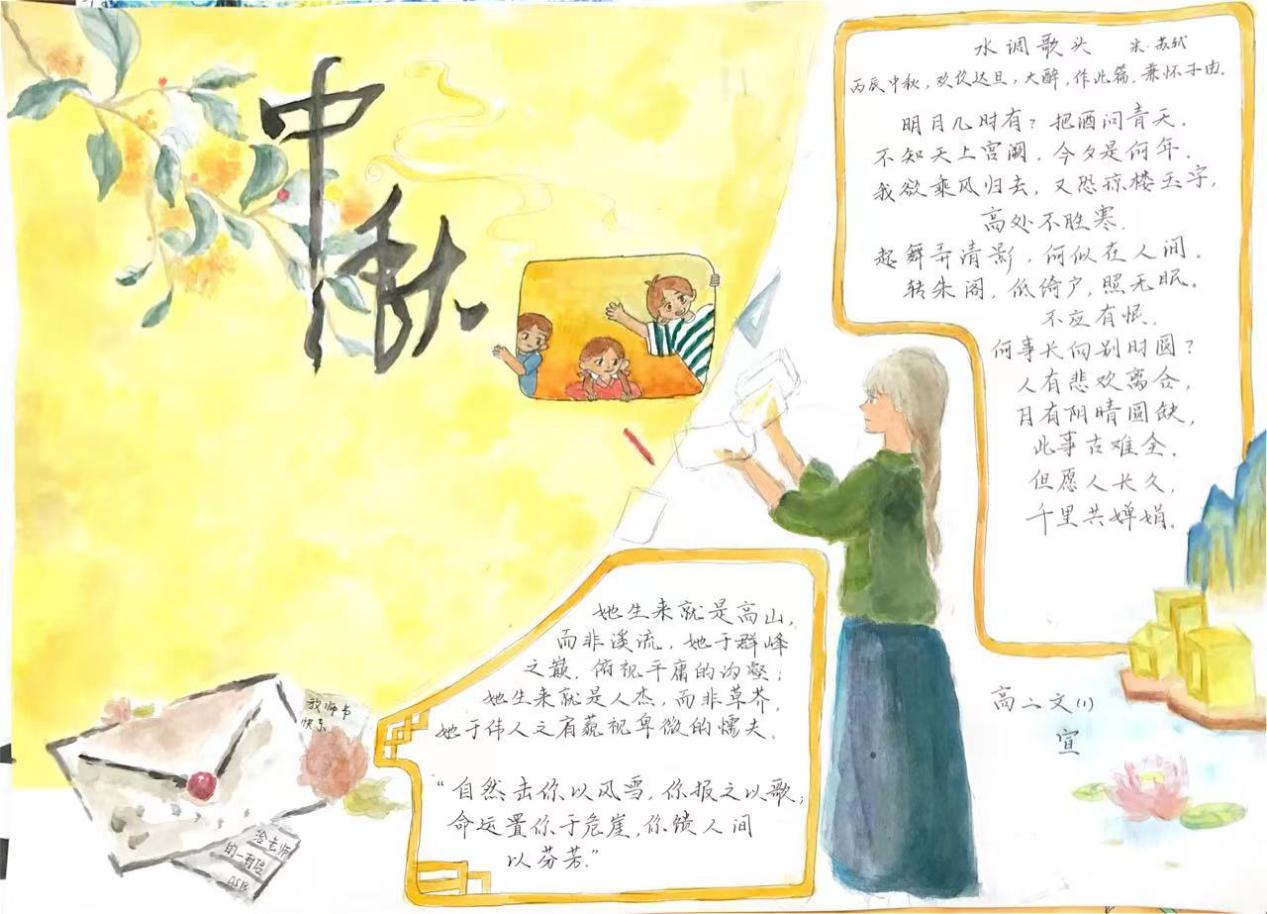 中秋
水调歌头 宋·苏轼
丙辰中秋，欢饮达旦，大醉，作此篇，兼怀子由。
明月几时有？把酒问青天。
不知天上宫阙，今夕是何年。
我欲乘风归去，又恐琼楼玉宇，
高处不胜寒。
起舞弄清影，何似在人间。
转朱阁，低绮户，照无眠。
不应有恨，
何事长向别时圆？
人有悲欢离合，
月有阴晴圆缺，
此事古难全。
但愿人长久，
千里共婵娟。
她生来就是高山，
而非溪流，她于群峰
之巅，俯视平庸的沟壑；
她生来就是人杰，而非草芥，
她于伟人之肩藐视卑微的懦夫。
“自然击你以风雪，你报之以歌；
命运置你于危崖，你馈人间
以芬芳。”
高二文(1)
宣
教师节
快乐
给老师
的一封信